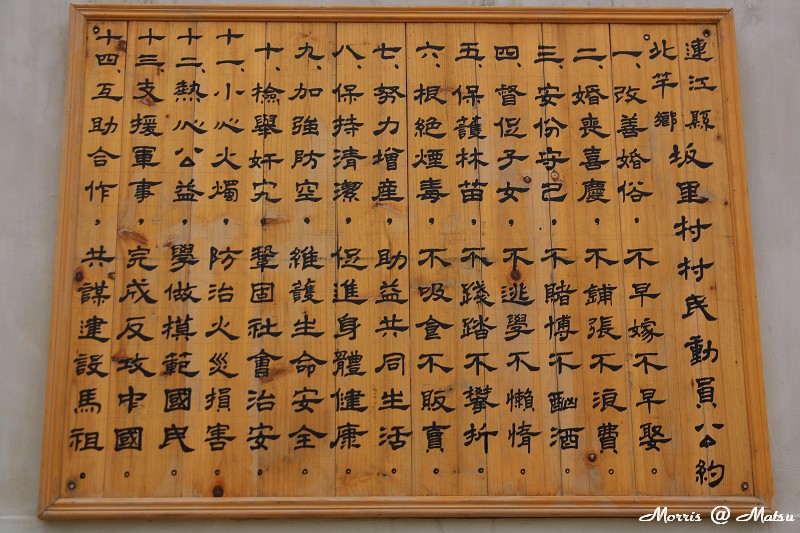 連江縣
北竿鄉坂里村村民動員公約
一、改善婚俗，不早嫁不早娶。
二、婚喪喜慶，不鋪張不浪費。
三、安份守己，不賭博不酗酒。
四、督促子女，不逃學不懶惰。
五、保護林苗，不踐踏不攀折。
六、根絕煙毒，不吸食不販賣。
七、努力增產，助益共同生活。
八、保持清潔，促進身體健康。
九、加強防空，維護生命安全。
十、檢舉奸宄，鞏固社會治安。
十一、小心火燭，防治火災損害。
十二、熱心公益，學做模範國民。
十三、支援軍事，完成反攻中國。
十四、互助合作，共謀建設馬祖。
Morris @ Matsu